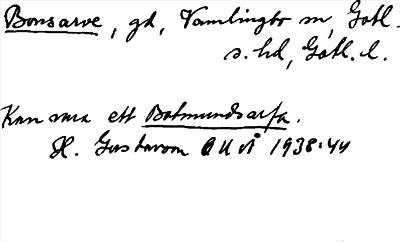 Bonsarve, gd, Vamlingbo sn, Gotl.
s. hd, Gotl. l.
Kan vara ett Botmundsarfa.
H. Gustavson 1938:44